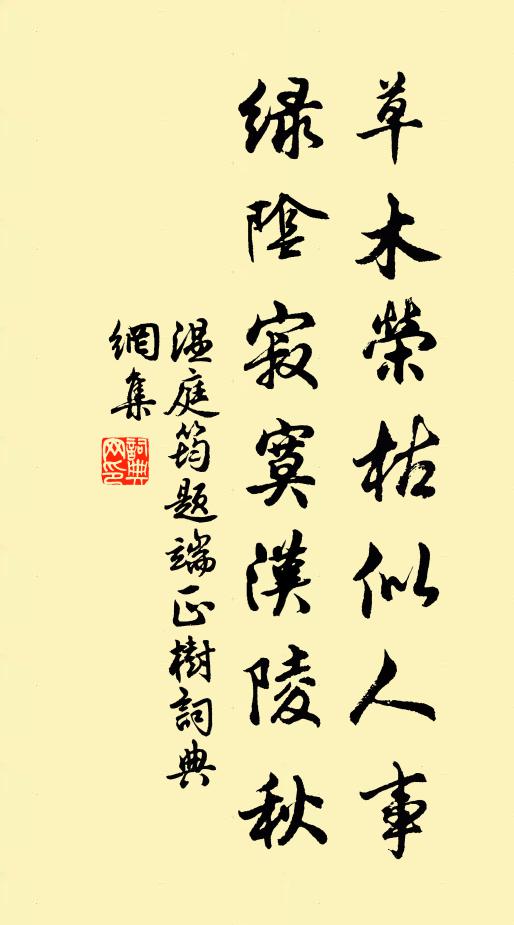 草木榮枯似人事
綠陰寂寞漢陵秋
温庭筠題端正樹詞典
網集
詞典
网印